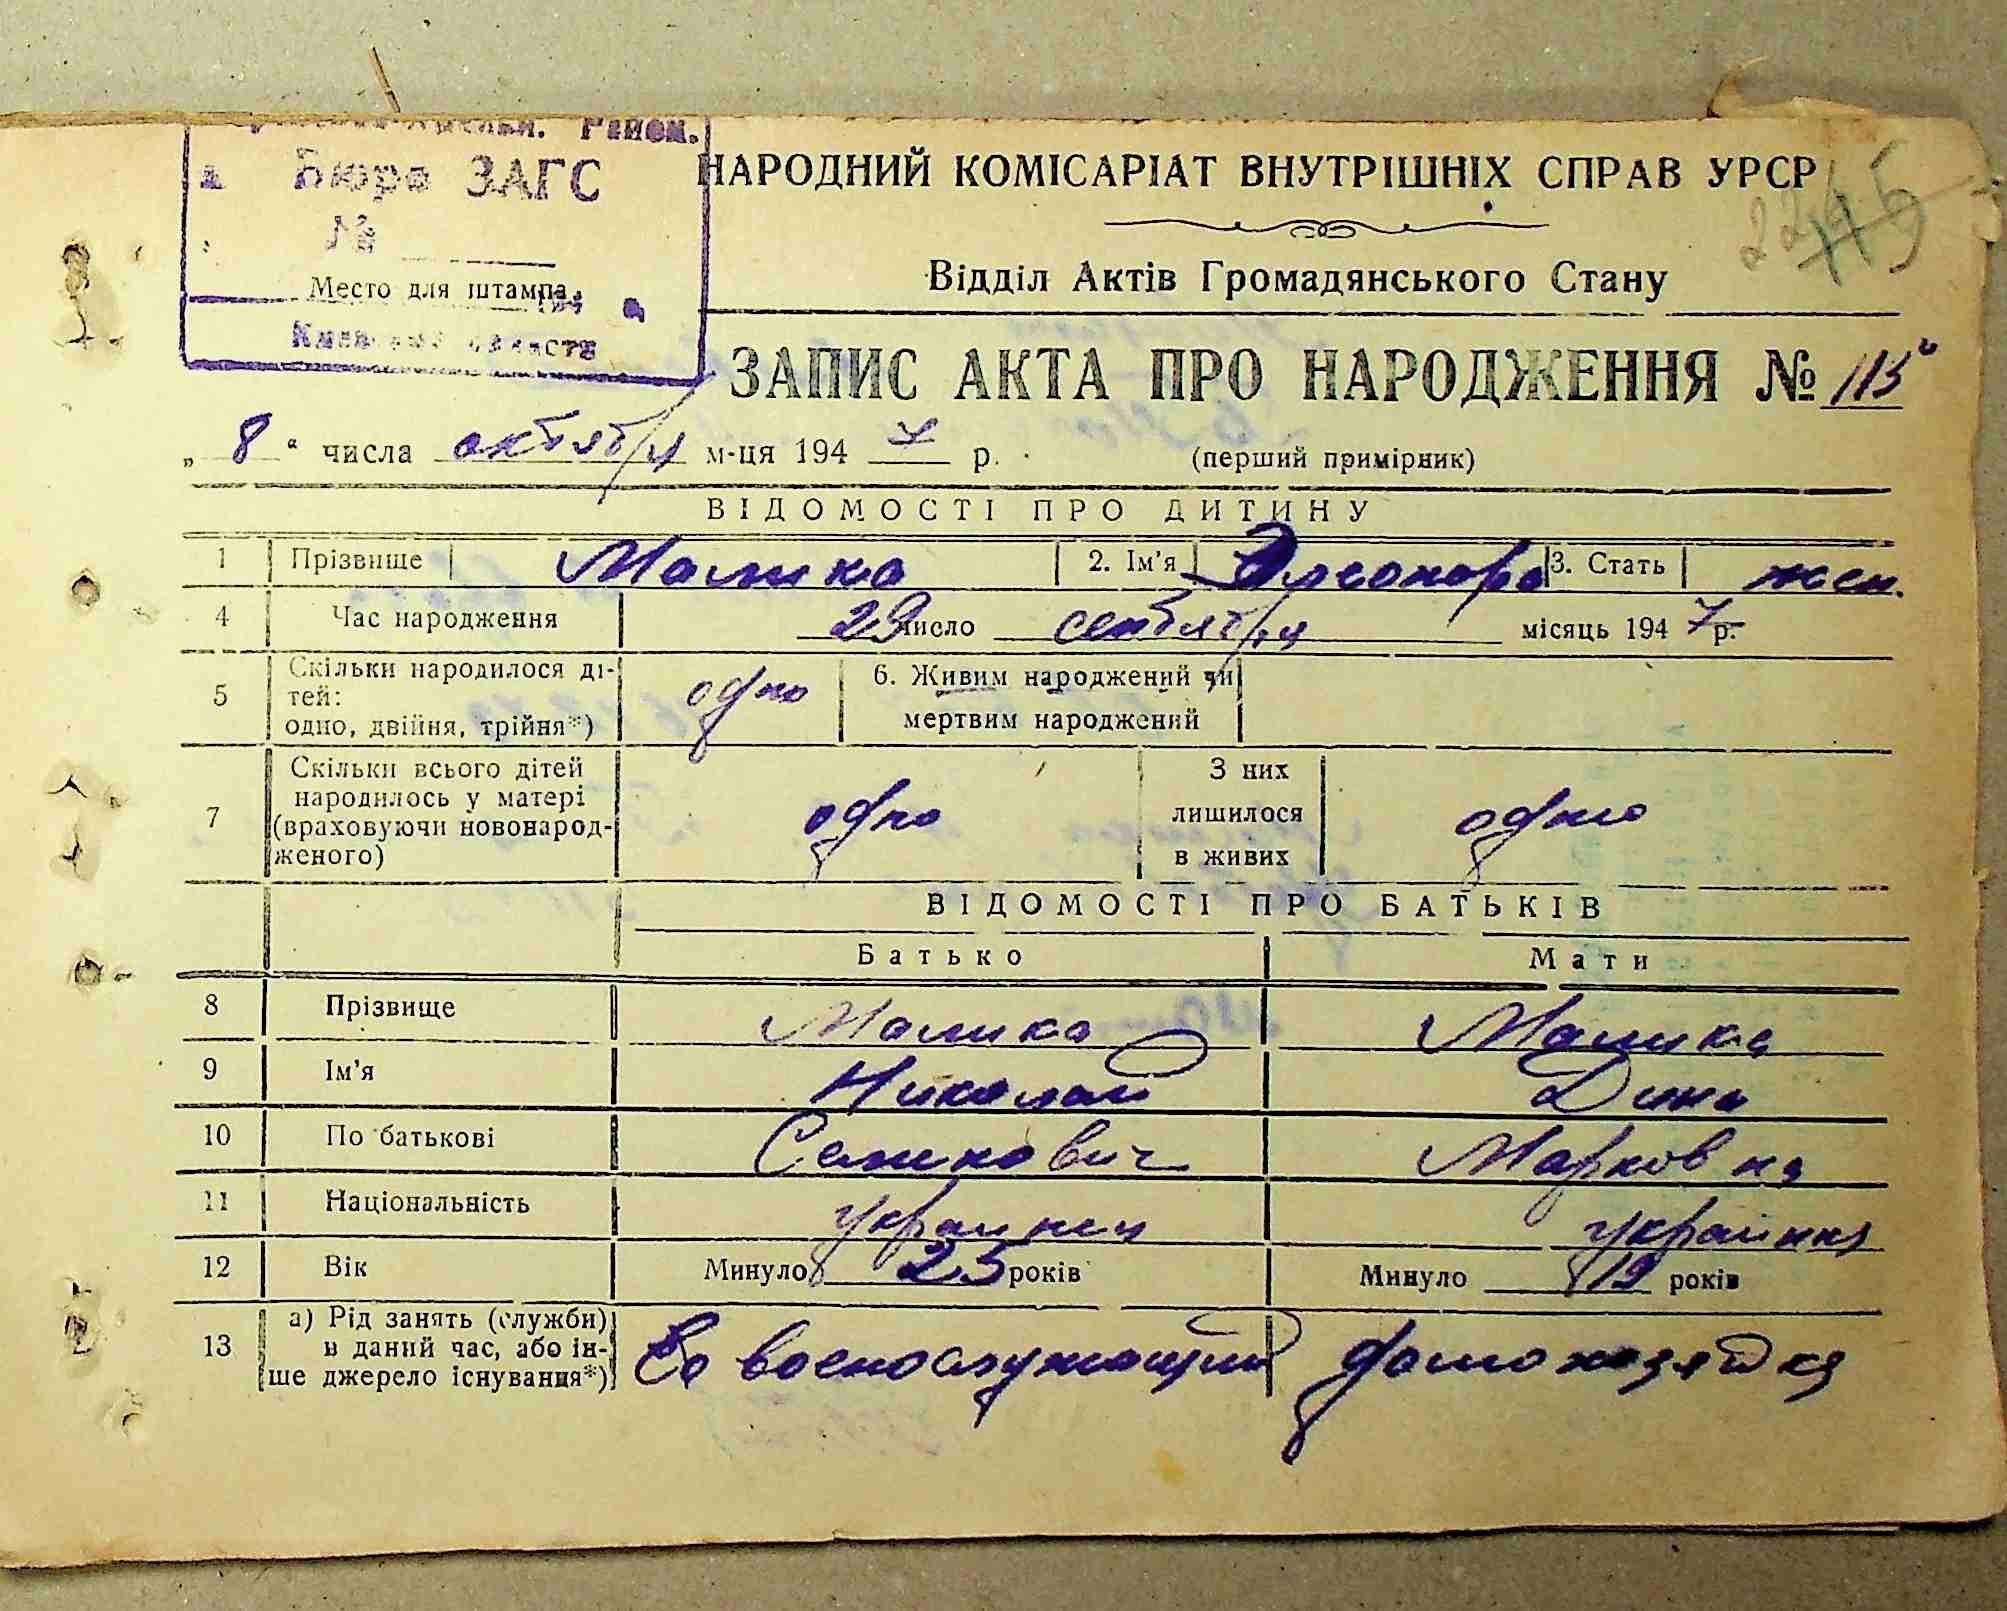 Район.
Бюро ЗАГС
№
Место для штампа
194
НАРОДНИЙ КОМІСАРІАТ ВНУТРІШНІХ СПРАВ УРСР
Відділ Актів Громадянського Стану
ЗАПИС АКТА ПРО НАРОДЖЕННЯ № 115
„ 8 “ числа октября м-ця 194 7 р. (перший примірник)
ВІДОМОСТІ ПРО ДИТИНУ
1 Прізвище Малика 2. Ім'я Элеонора 3. Стать жен.
4 Час народження 29 число сентября місяць 194 7 р.
5 Скільки народилося ді-
тей:
одно, двійня, трійня*) одно 6. Живим народжений чи
мертвим народжений
7 Скільки всього дітей
народилось у матері
(враховуючи новонарод-
женого) одно З них
лишилося
в живих одно
ВІДОМОСТІ ПРО БАТЬКІВ
Батько Мати
8 Прізвище Малика Малика
9 Ім'я Николай Дина
10 По батькові Марковна
11 Національність украинец украинка
12 Вік Минуло 25 років Минуло 19 років
13 а) Рід занять (служби)
в даний час, або ін-
ше джерело існування*) военнослужащий домохозяйка